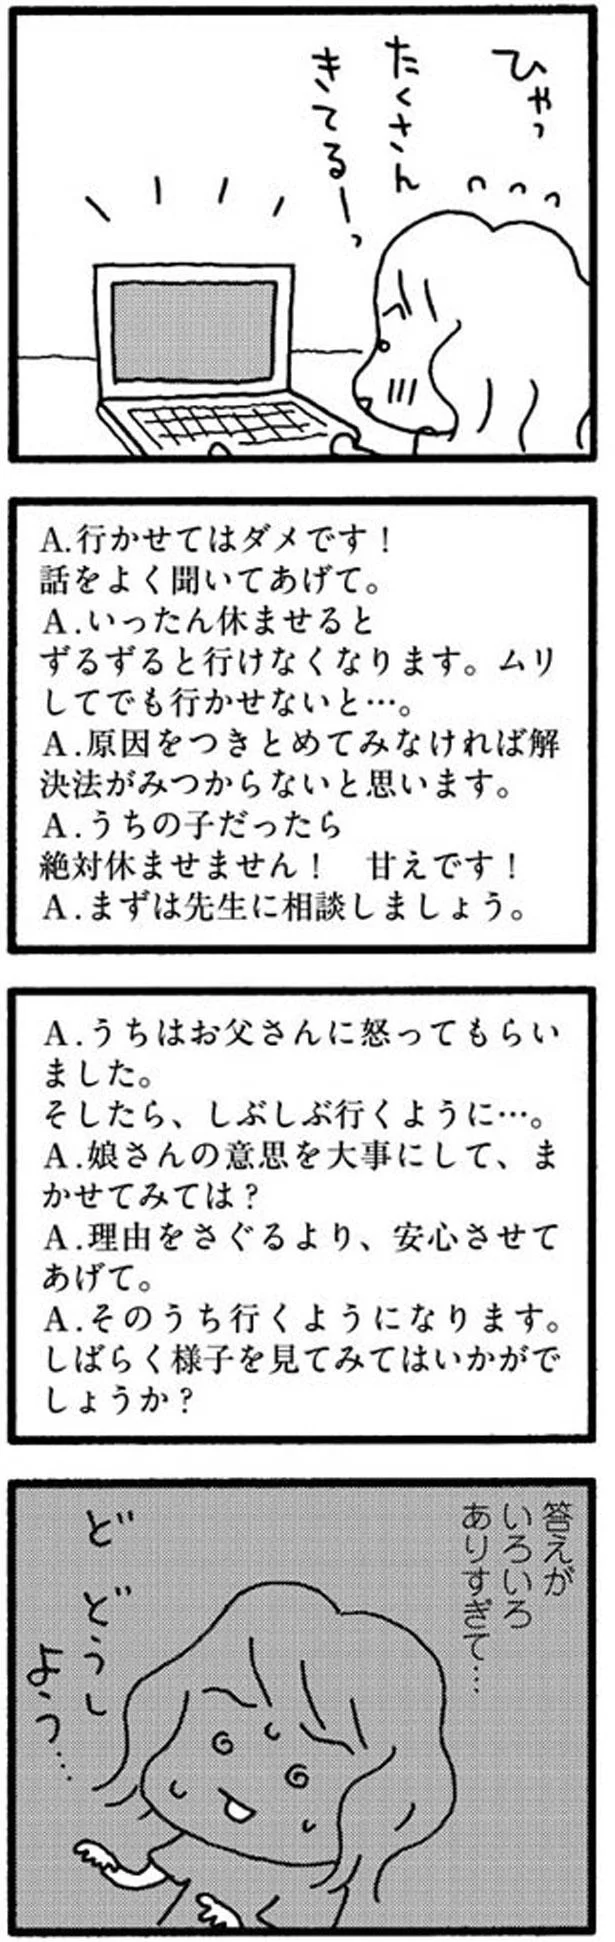 ひゃっ
たくさん
きてるーっ
A.行かせてはダメです！
話をよく聞いてあげて。
A.いったん休ませると
ずるずると行けなくなります。ムリ
してでも行かせないと…。
A.原因をつきとめてみなければ解
決法がみつからないと思います。
A.うちの子だったら
絶対休ませません！　甘えです！
A.まずは先生に相談しましょう。
A.うちはお父さんに怒ってもらい
ました。
そしたら、しぶしぶ行くように…。
A.娘さんの意思を大事にして、ま
かせてみては？
A.理由をさぐるより、安心させて
あげて。
A.そのうち行くようになります。
しばらく様子を見てみてはいかがで
しょうか？
答えが
いろいろ
ありすぎて…
ど
どうし
よう…